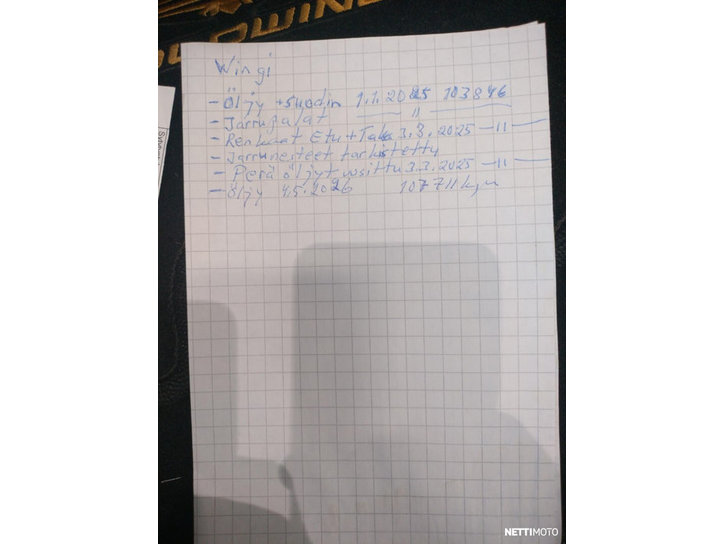 GOLDWING
Wingi
- Öljy + suodin 1.1.2025 103846
- Jarrupalat —— 11 ——
- Renkaat Etu + Taka 3.3.2025 — 11 —
- Jarrunesteet tarkistettu
- Perä öljyt uusittu 3.3.2025 — 11 —
- Öljy 4.5.2026 107711 km
NETTIMOTO